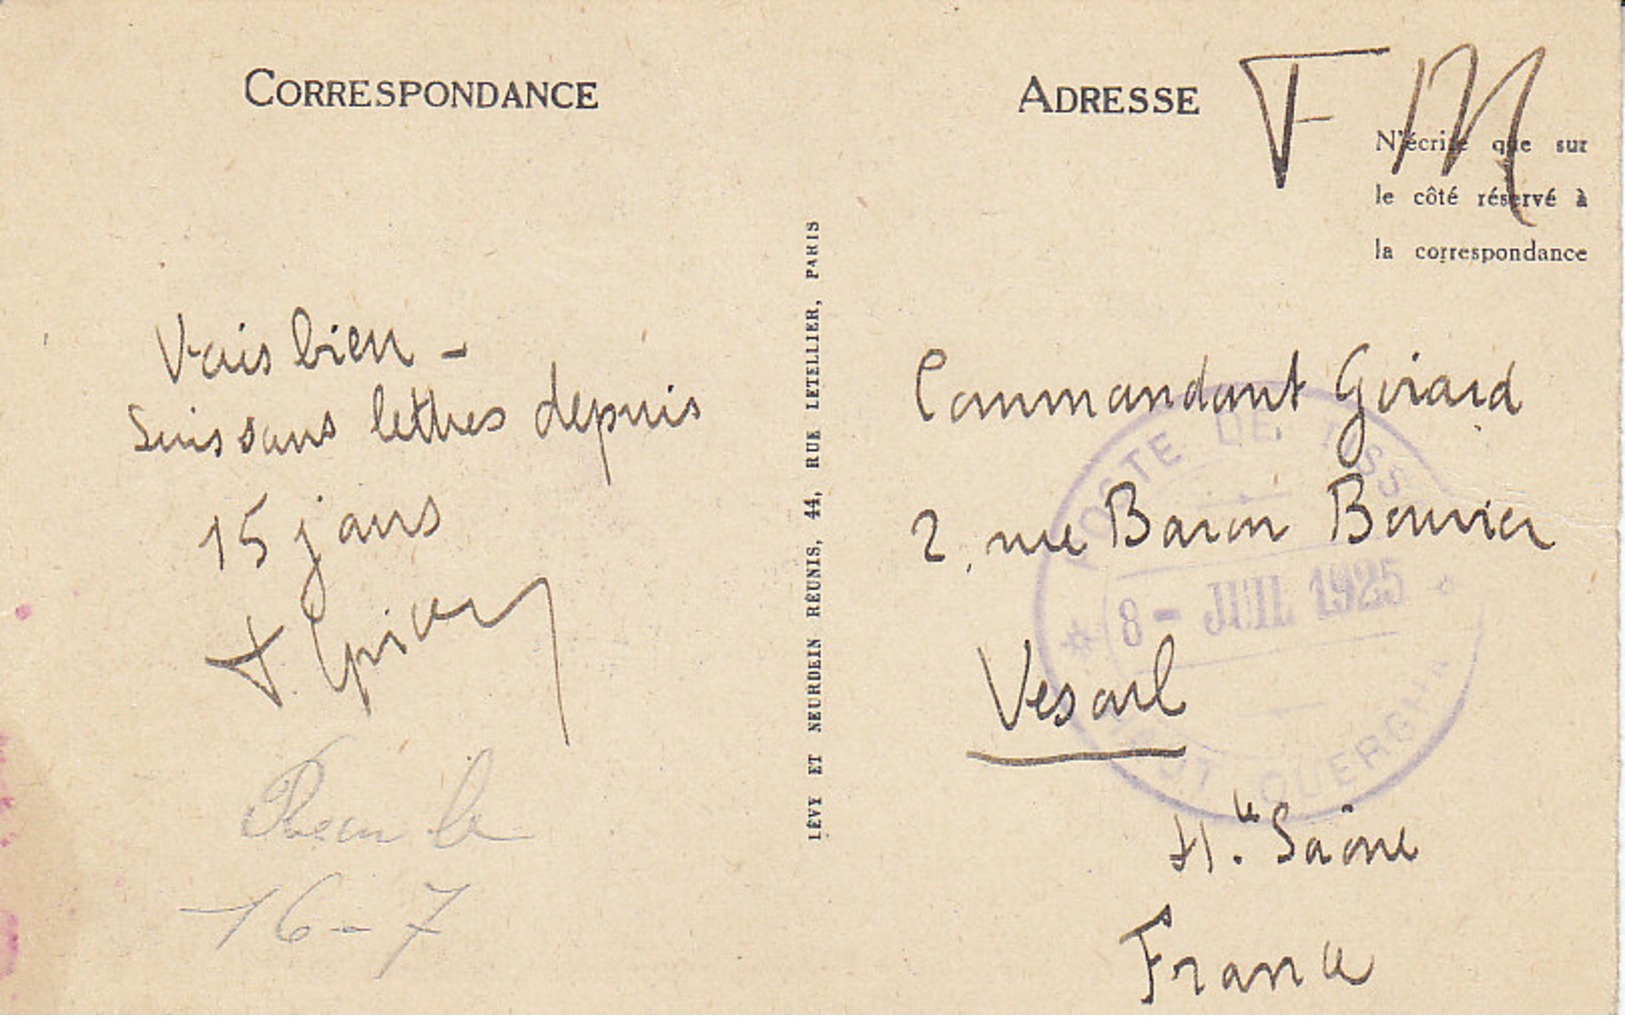 CORRESPONDANCE
Vais bien -
Suis sans lettres depuis
15 jours
Reçu le
16-7
LÉVY ET NEURDEIN RÉUNIS, 44, RUE LETELLIER, PARIS
ADRESSE
FM
N'écrire que sur
le côté réservé à
la correspondance
Commandant Girard
2, rue Baron Bouvier
Vesoul
Hte Saône
France
POSTE DE
8 - JUIL 1925
HAUT OUERGHA